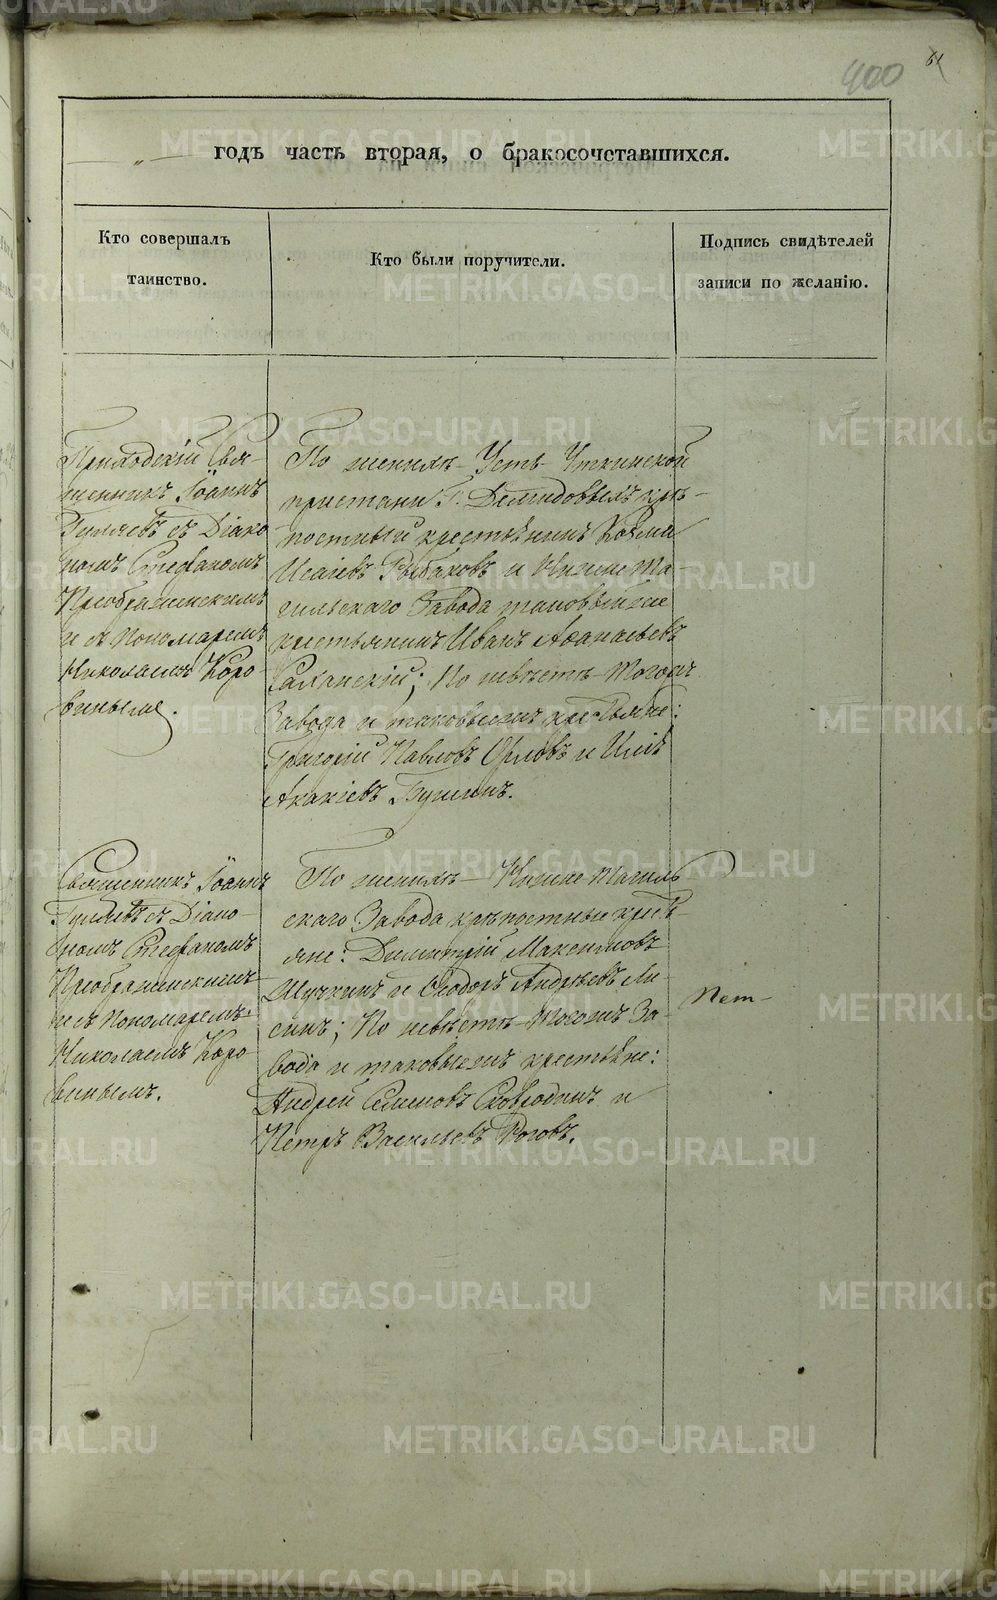 400 61
годъ часть вторая, о бракосочетавшихся.
Кто совершалъ
таинство.
Кто были поручители.
Подпись свидѣтелей
записи по желанію.
Приходскій Свя-
щенникъ Іоаннъ
Гуляевъ съ Діако
номъ Стефаномъ
Преображенскимъ
и съ Пономаремъ
Николаемъ Коро-
винымъ.
По женихѣ Усть-Уткинской
пристани Г. Демидовыхъ крѣ-
постный крестьянинъ Козма
Исаіевъ Рыбаковъ и Нижне Та-
гильскаго Завода таковыйже
крестьянинъ Иванъ Аѳанасьевъ
По невѣстѣ Тогожъ
Завода и таковыежъ крестьяне:
Григорій Павловъ Орловъ и Илія
Акакіевъ
Священникъ Іоаннъ
Гуляевъ съ Діако-
номъ Стефаномъ
Преображенскимъ
и съ Пономаремъ
Николаемъ Коро-
винымъ.
По женихѣ Нижне Тагиль
скаго Завода крѣпостные кресть-
яне: Димитрій Максимовъ
Щучкинъ и Ѳеодоръ Андреевъ Ли-
синъ; По невѣстѣ Тогожъ За-
вода и таковыежъ крестьяне:
Андрей Семеновъ Сковродинъ и
Петръ Васильевъ Роговъ.
Нет
METRIKI.GASO-URAL.RU